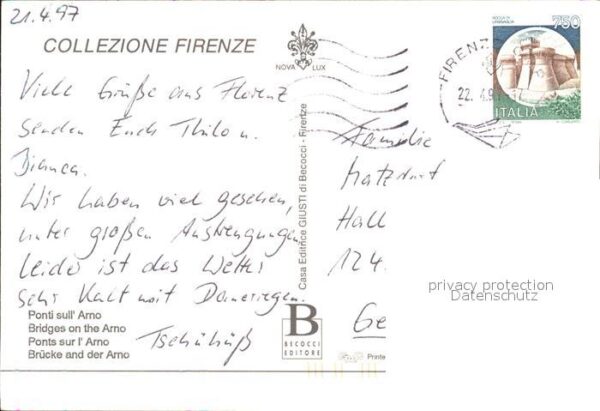 21.4.97
COLLEZIONE FIRENZE
NOVA LUX
FIRENZ
22.4.9
ROCCA DI URBISAGLIA
750
ITALIA
Viele Grüße aus Florenz
senden Euch Thilo u.
Bianca.
Wir haben viel gesehen,
unter großen Anstrengungen,
leider ist das Wetter
sehr kalt mit Dauerregen.
Tschühüß
Casa Editrice GIUSTI di Becocci - Firenze
Familie
Matzdorf
Hall
124.
Ge
privacy protection
Datenschutz
Ponti sull' Arno
Bridges on the Arno
Ponts sur l' Arno
Brücke and der Arno
B
BECOCCI
EDITORE
Printe